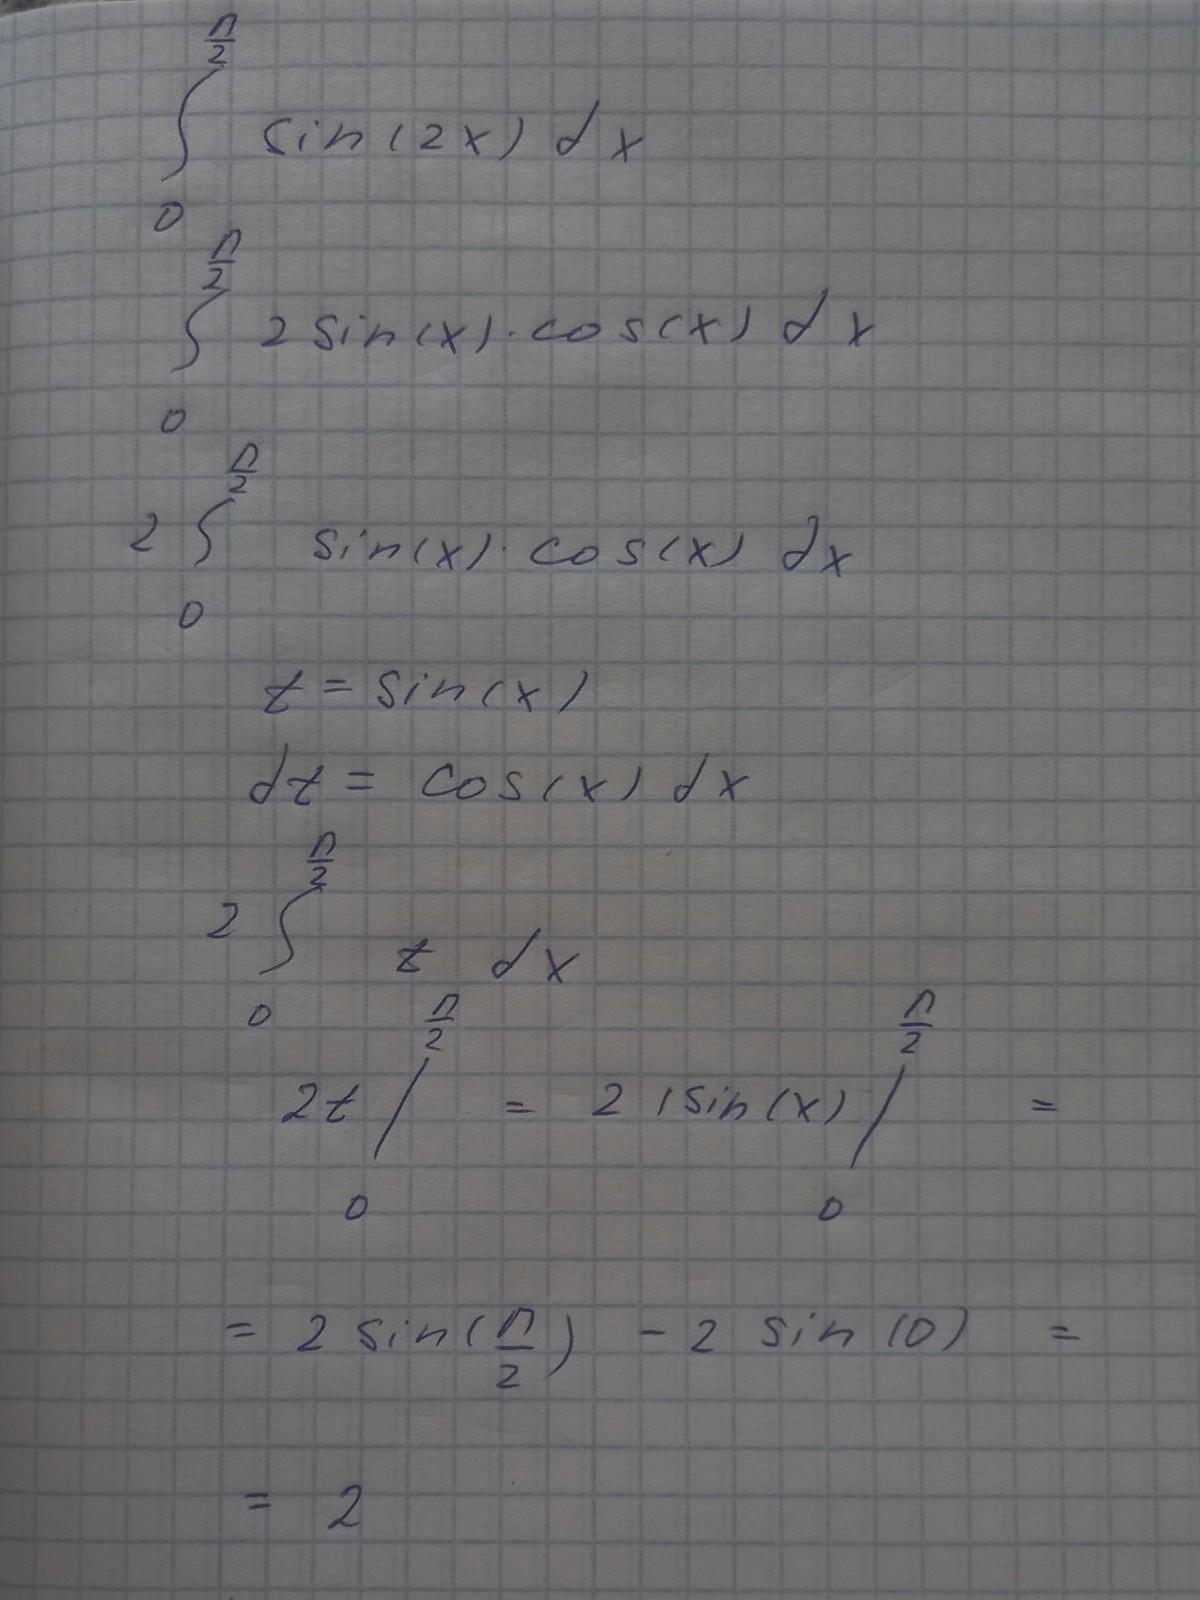 ∫₀^(π/2) sin(2x) dx
∫₀^(π/2) 2 sin(x) · cos(x) dx
2 ∫₀^(π/2) sin(x) · cos(x) dx
t = sin(x)
dt = cos(x) dx
2 ∫₀^(π/2) t dx
2t /₀^(π/2) = 2 (sin(x) /₀^(π/2) =
= 2 sin(π/2) - 2 sin(0) =
= 2